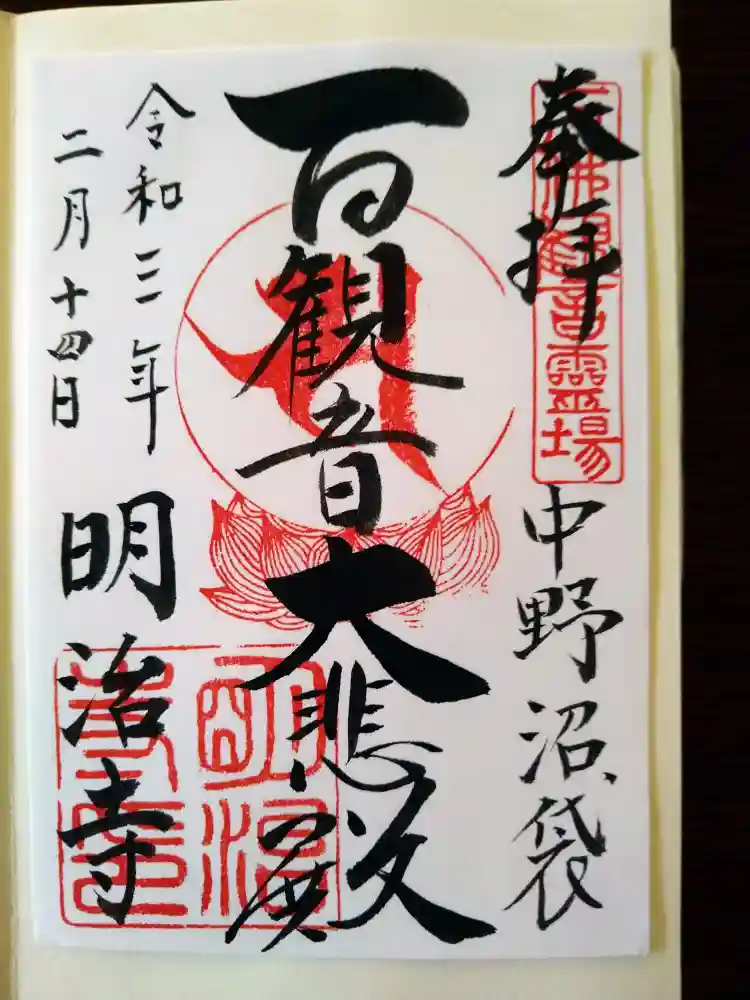 奉拝
観音霊場
中野沼袋
百観音大悲殿
令和三年
二月十四日
明治寺
明治